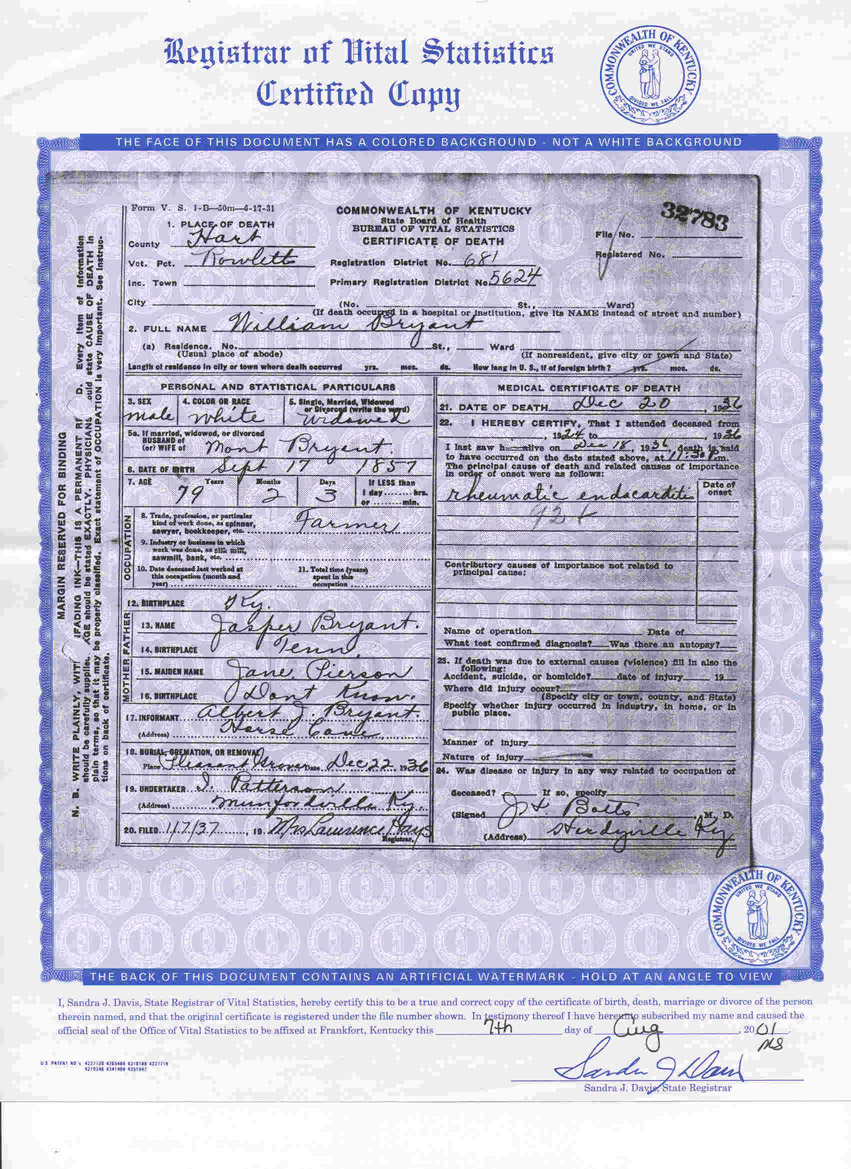 Registrar of Vital Statistics
Certified Copy
COMMONWEALTH OF KENTUCKY
UNITED WE STAND
DIVIDED WE FALL
THE FACE OF THIS DOCUMENT HAS A COLORED BACKGROUND - NOT A WHITE BACKGROUND
MARGIN RESERVED FOR BINDING
Form V. S. 1-B—50m—6-17-31
COMMONWEALTH OF KENTUCKY
State Board of Health
BUREAU OF VITAL STATISTICS
CERTIFICATE OF DEATH
32783
File No.
Registered No.
1. PLACE OF DEATH
County Hart
Vot. Pct. Rowletts
Inc. Town
City
Registration District No. 681
Primary Registration District No. 5624
(No. St., Ward)
(If death occurred in a hospital or institution, give its NAME instead of street and number)
2. FULL NAME William Bryant
(a) Residence. No. St., Ward
(Usual place of abode) (If nonresident, give city or town and State)
Length of residence in city or town where death occurred yrs. mos. ds. How long in U. S., if of foreign birth? yrs. mos. ds.
PERSONAL AND STATISTICAL PARTICULARS
3. SEX male
4. COLOR OR RACE white
5. Single, Married, Widowed or Divorced (write the word) Widowed
5a. If married, widowed, or divorced
HUSBAND of
(or) WIFE of Mont Bryant
6. DATE OF BIRTH Sept 17 1857
7. AGE 79 Years 2 Months 3 Days If LESS than 1 day hrs. or min.
OCCUPATION
8. Trade, profession, or particular kind of work done, as spinner, sawyer, bookkeeper, etc. Farmer
9. Industry or business in which work was done, as silk mill, sawmill, bank, etc.
10. Date deceased last worked at this occupation (month and year)
11. Total time (years) spent in this occupation
12. BIRTHPLACE Ky.
FATHER
13. NAME Jasper Bryant.
14. BIRTHPLACE Tenn.
MOTHER
15. MAIDEN NAME Jane Pierson
16. BIRTHPLACE Dont Know.
17. INFORMANT Albert J. Bryant.
(Address) Horse Cave
18. BURIAL, CREMATION, OR REMOVAL
Place Pleasant Grove Date Dec 22 1936
19. UNDERTAKER Patterson
(Address) Munfordville Ky.
20. FILED 1/7/37, 19 Mrs Lawrence Hays
Registrar.
MEDICAL CERTIFICATE OF DEATH
21. DATE OF DEATH Dec 20, 1936
22. I HEREBY CERTIFY, That I attended deceased from
, 1924 to , 1936
I last saw h alive on Dec 18, 1936, death is said
to have occurred on the date stated above, at 11:30 P.m.
The principal cause of death and related causes of importance
in order of onset were as follows:
Date of onset
rheumatic endocarditis
Contributory causes of importance not related to
principal cause:
Name of operation Date of
What test confirmed diagnosis? Was there an autopsy?
23. If death was due to external causes (violence) fill in also the
following:
Accident, suicide, or homicide? date of injury 19
Where did injury occur?
(Specify city or town, county, and State)
Specify whether injury occurred in industry, in home, or in
public place.
Manner of injury
Nature of injury
24. Was disease or injury in any way related to occupation of
deceased? If so, specify
(Signed Botts, M. D.
(Address) Ky
THE BACK OF THIS DOCUMENT CONTAINS AN ARTIFICIAL WATERMARK - HOLD AT AN ANGLE TO VIEW
COMMONWEALTH OF KENTUCKY
UNITED WE STAND
DIVIDED WE FALL
I, Sandra J. Davis, State Registrar of Vital Statistics, hereby certify this to be a true and correct copy of the certificate of birth, death, marriage or divorce of the person
therein named, and that the original certificate is registered under the file number shown. In testimony thereof I have hereunto subscribed my name and caused the
official seal of the Office of Vital Statistics to be affixed at Frankfort, Kentucky this 7th day of Aug, 2001.
Sandra J Davis
Sandra J. Davis, State Registrar